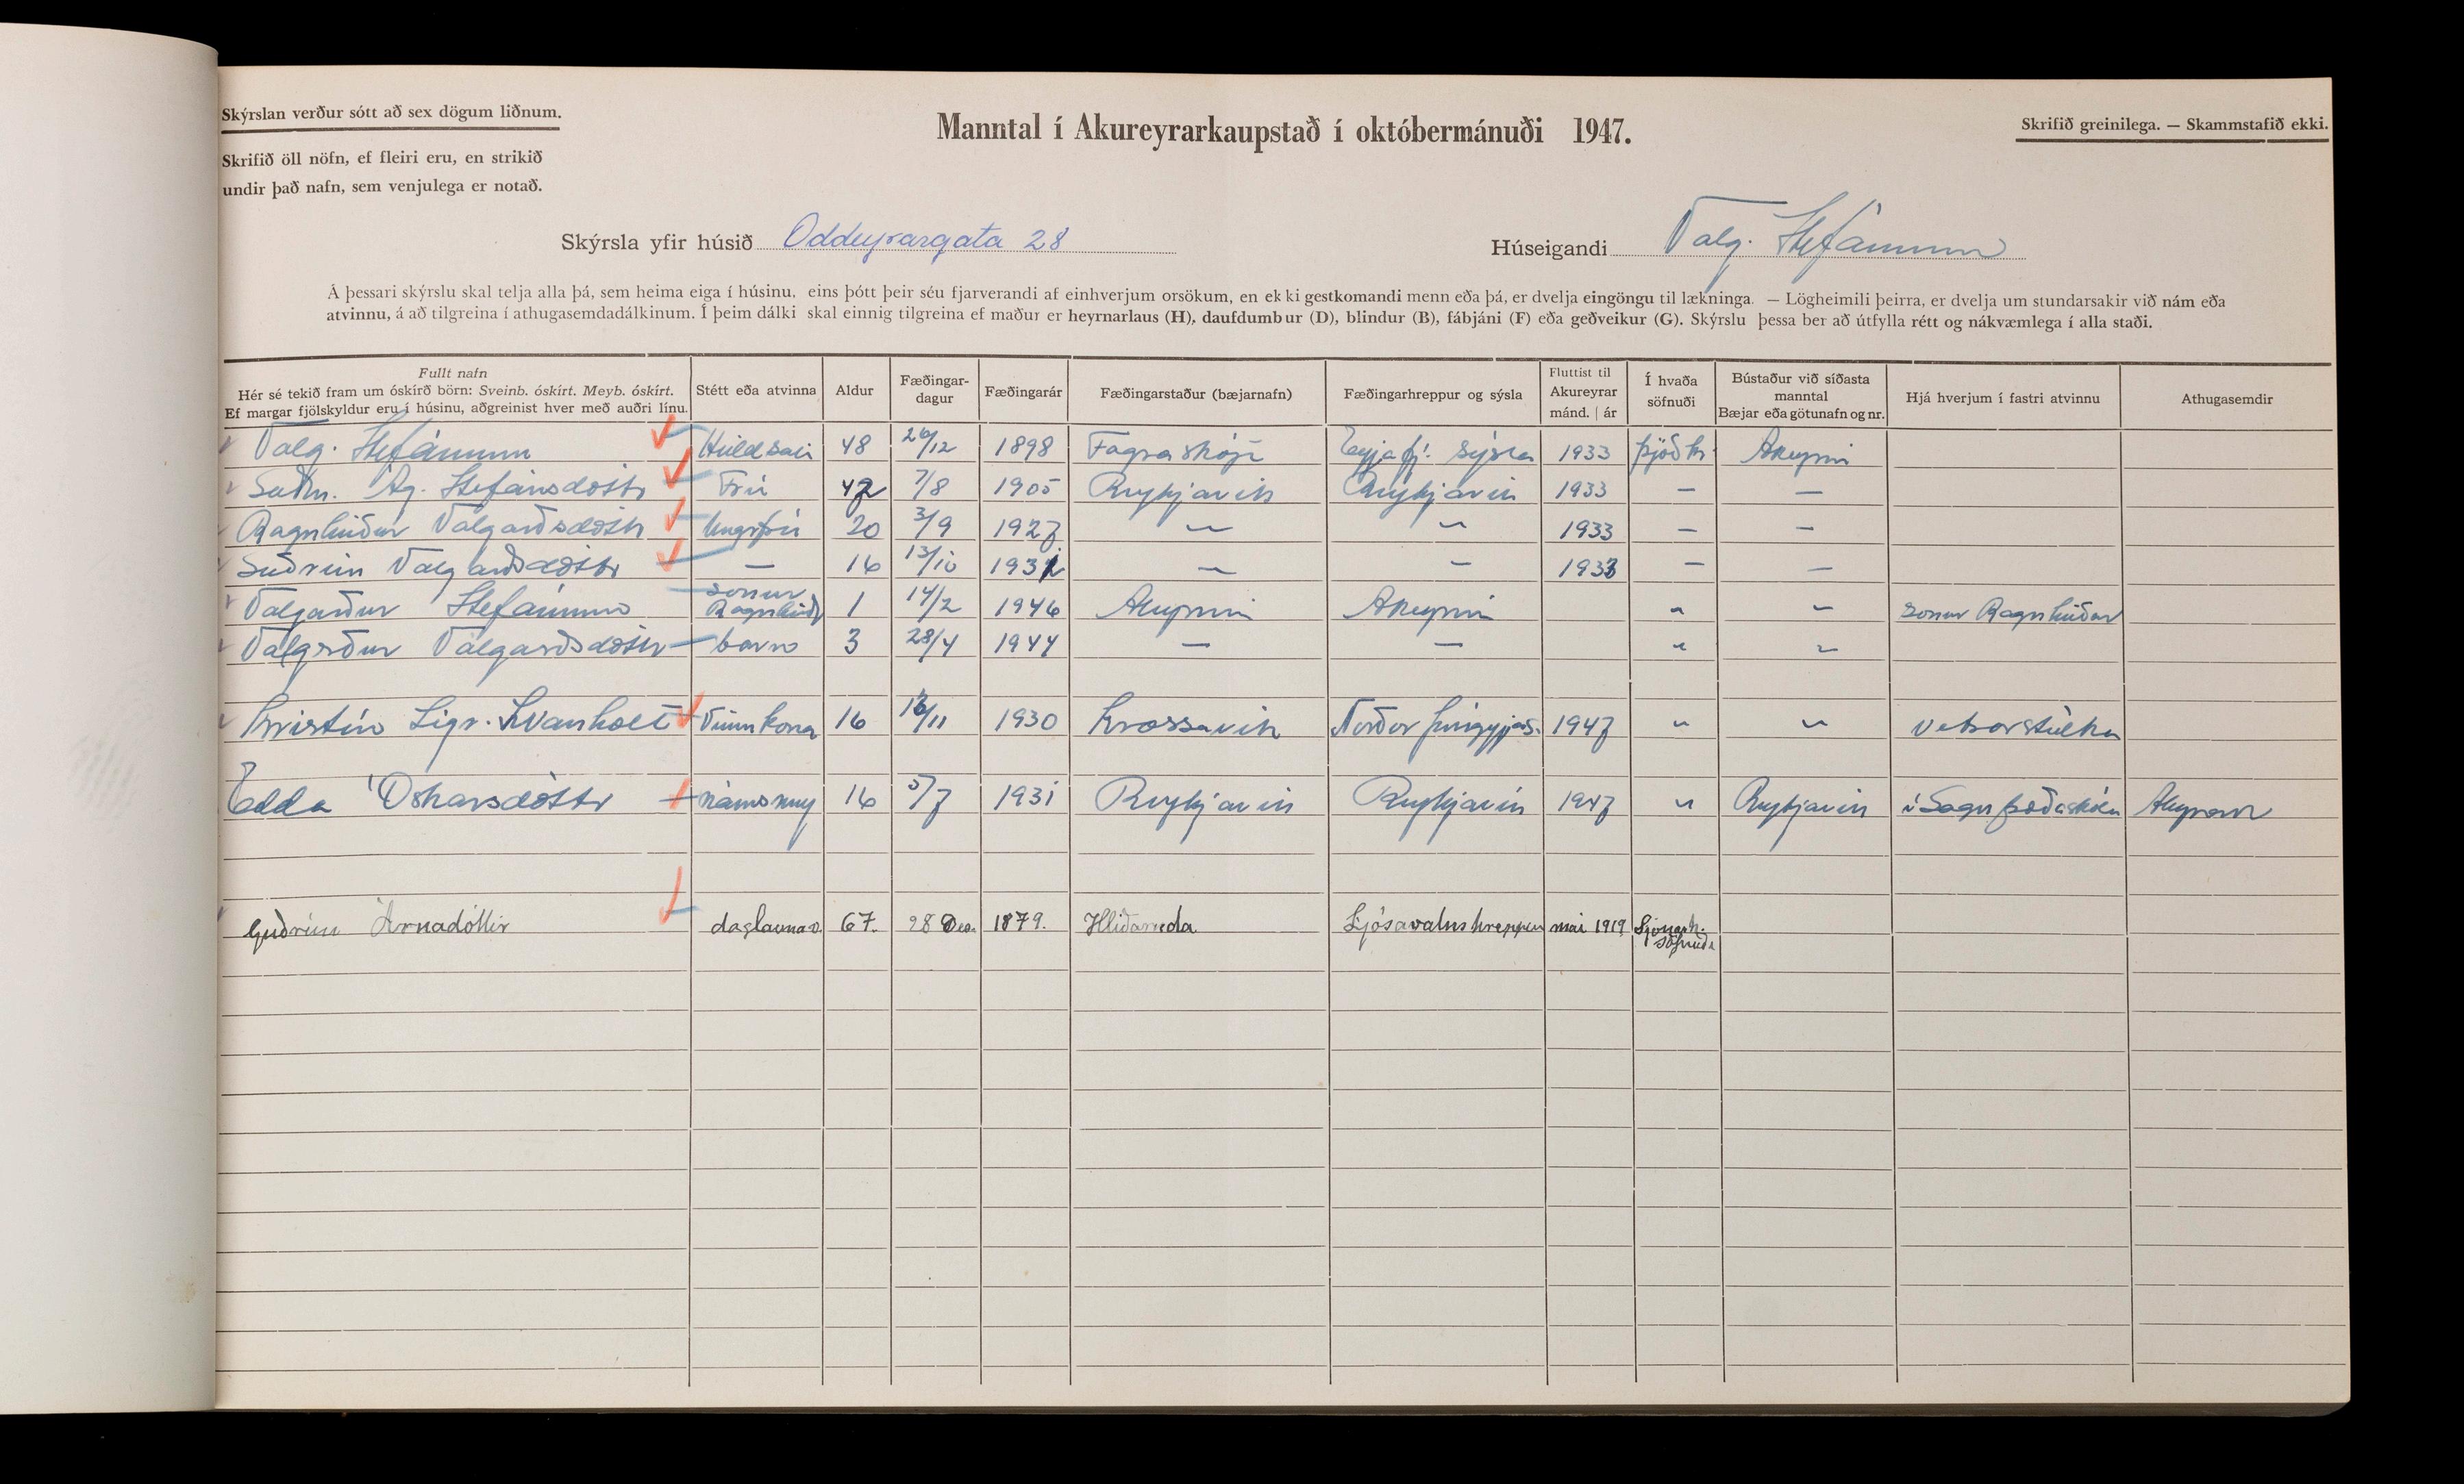 Skýrslan verður sótt að sex dögum liðnum.
Skrifið öll nöfn, ef fleiri eru, en strikið
undir það nafn, sem venjulega er notað.
Manntal í Akureyrarkaupstað í októbermánuði 1947.
Skrifið greinilega. — Skammstafið ekki.
Skýrsla yfir húsið Oddeyrargata 28
Húseigandi Valg. Stefánsson
Á þessari skýrslu skal telja alla þá, sem heima eiga í húsinu, eins þótt þeir séu fjarverandi af einhverjum orsökum, en ekki gestkomandi menn eða þá, er dvelja eingöngu til lækninga. — Lögheimili þeirra, er dvelja um stundarsakir við nám eða
atvinnu, á að tilgreina í athugasemdadálkinum. Í þeim dálki skal einnig tilgreina ef maður er heyrnarlaus (H), daufdumbur (D), blindur (B), fábjáni (F) eða geðveikur (G). Skýrslu þessa ber að útfylla rétt og nákvæmlega í alla staði.
Fullt nafn
Hér sé tekið fram um óskírð börn: Sveinb. óskírt. Meyb. óskírt.
Ef margar fjölskyldur eru í húsinu, aðgreinist hver með auðri línu.
Stétt eða atvinna
Aldur
Fæðingar-
dagur
Fæðingarár
Fæðingarstaður (bæjarnafn)
Fæðingarhreppur og sýsla
Fluttist til
Akureyrar
mánd. | ár
Í hvaða
söfnuði
Bústaður við síðasta
manntal
Bæjar eða götunafn og nr.
Hjá hverjum í fastri atvinnu
Athugasemdir
Valg. Stefánsson Heildsali 48 26/12 1898 Fagraskógi Eyjafj. sýsla 1933 þjóðk. Akureyri
Guðm. Ág. Stefánsdóttir Frú 42 7/8 1905 Reykjavík Reykjavík 1933 — —
Ragnheiður Valgarðsdóttir Ungfrú 20 3/9 1927 〃 〃 1933 — —
Guðrún Valgarðsdóttir — 16 13/10 1931 — — 1933 — —
Valgarður Stefánsson sonur Ragnheiðar 1 14/2 1946 Akureyri Akureyri 〃 〃 sonur Ragnheiðar
Valgerður Valgarðsdóttir barn 3 28/4 1944 — — 〃 〃
Kristín Sigr. Kvanholt Vinnukona 16 16/11 1930 Krossavík Norður þingeyjas. 1947 〃 〃 vetrarstúlka
Edda Óskarsdóttir námsmey 16 5/7 1931 Reykjavík Reykjavík 1947 〃 Reykjavík í Gagnfræðaskóla Akureyrar
Guðrún Árnadóttir daglaunav. 67. 28 Des. 1879. Ljósavatnshreppur maí 1919